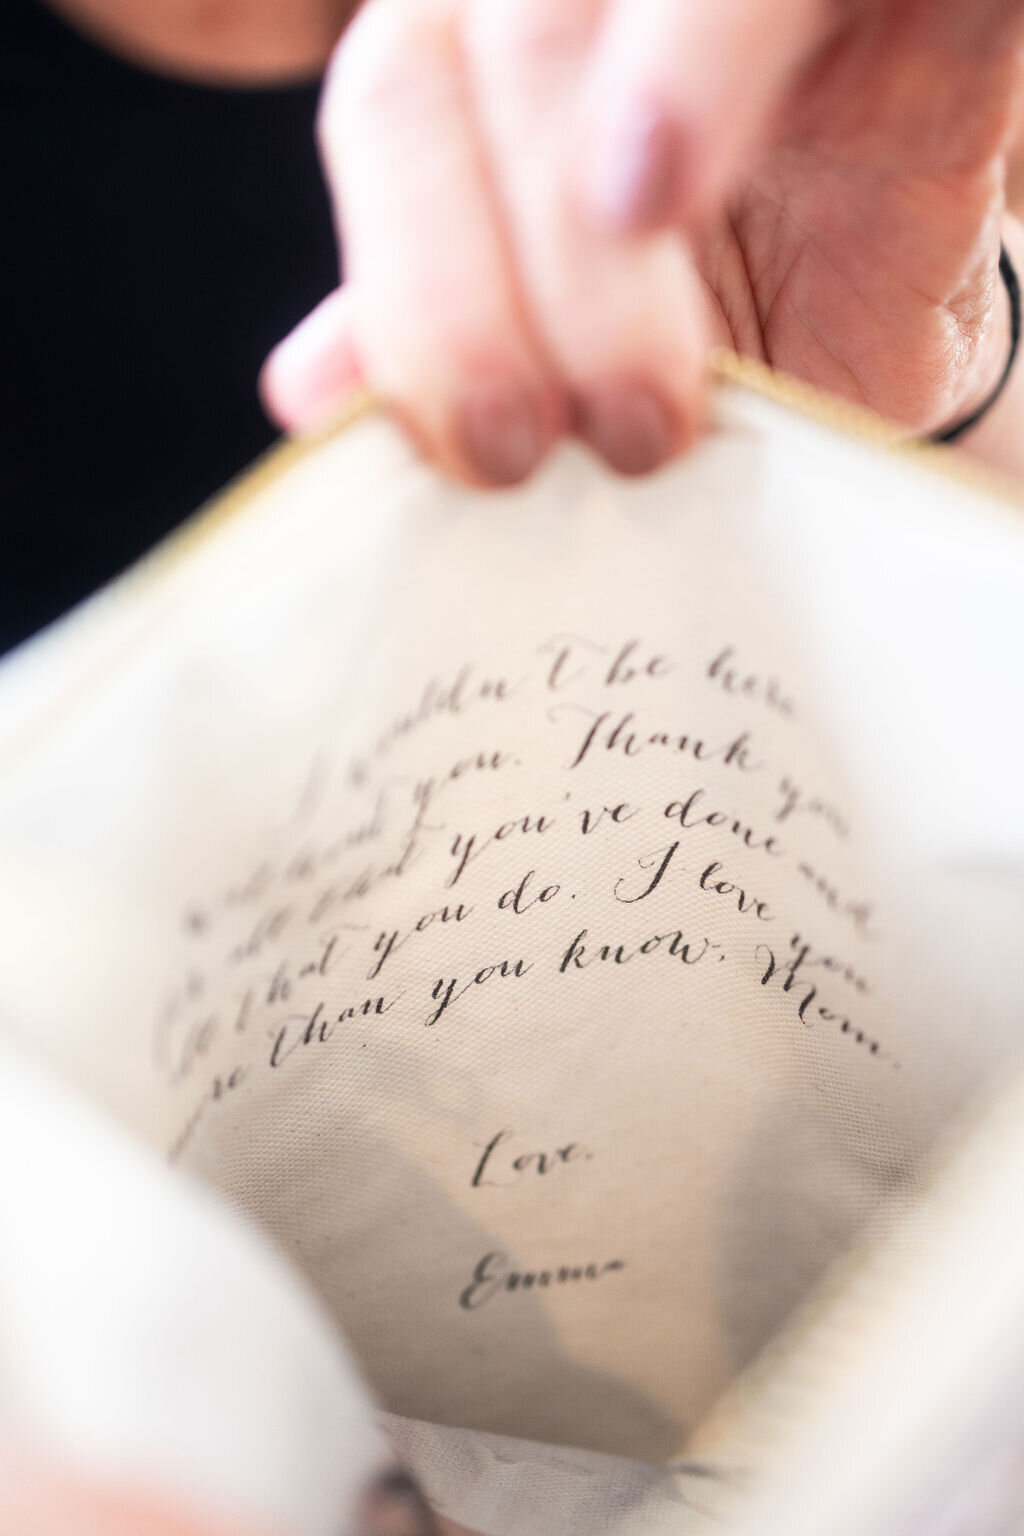 I wouldn't be here
without you. Thank you
for all that you've done and
all that you do. I love you
more than you know, Mom.
Love,
Emma